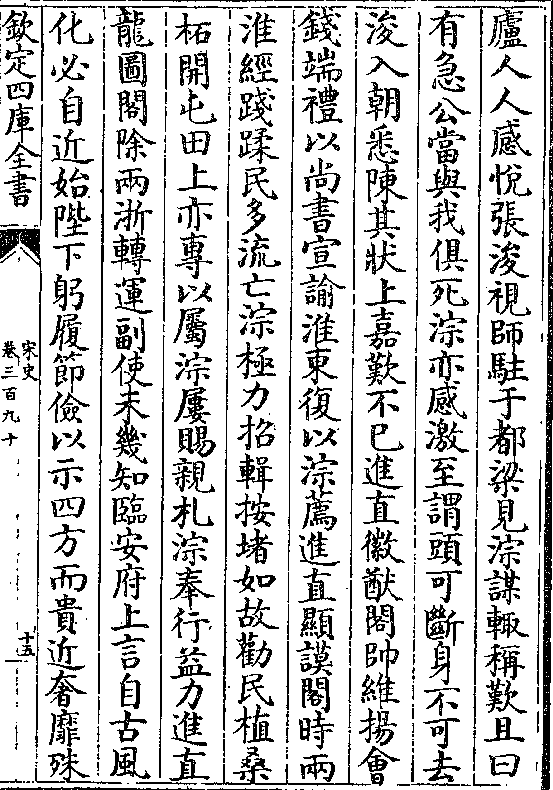 廬人人感悅張浚視師駐于都梁見淙謀輙稱歎且曰
有急公當與我俱死淙亦感激至謂頭可斷身不可去
浚入朝悉陳其狀上嘉歎不已進直徽猷閣帥維揚會
錢端禮以尚書宣諭淮東復以淙薦進直顯謨閣時兩
淮經踐蹂民多流亡淙極力招輯按堵如故勸民植桑
柘開屯田上亦專以屬淙屢賜親札淙奉行益力進直
龍圖閣除兩浙轉運副使未幾知臨安府上言自古風
化必自近始陛下躬履節儉以示四方而貴近奢靡殊
欽定四庫全書
宋史
卷三百九十
十五